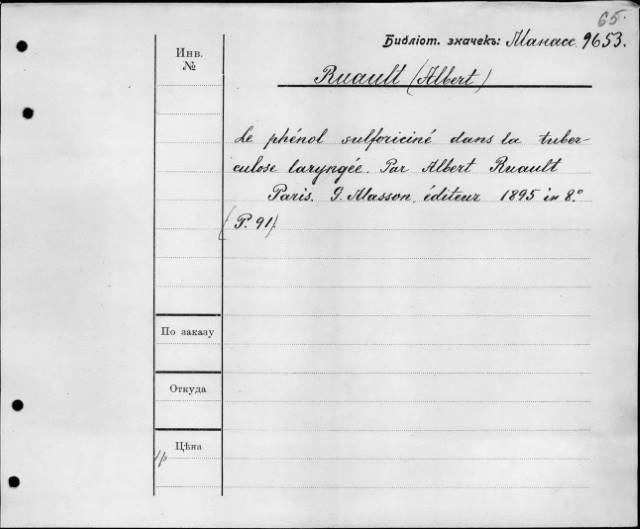 65.
Библіот. значекъ: Манасс. 9653.
Инв.
№
Ruault (Albert)
Le phénol sulforiciné dans la tuber-
culose laryngée. Par Albert Ruault
Paris. G. Masson, éditeur 1895 in 8.°
(P. 91)
По заказу
Откуда
Цѣна